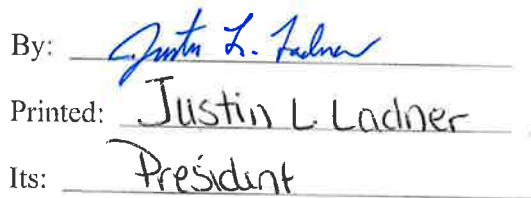 By: Justin L. Ladner
Printed: Justin L. Ladner
Its: President